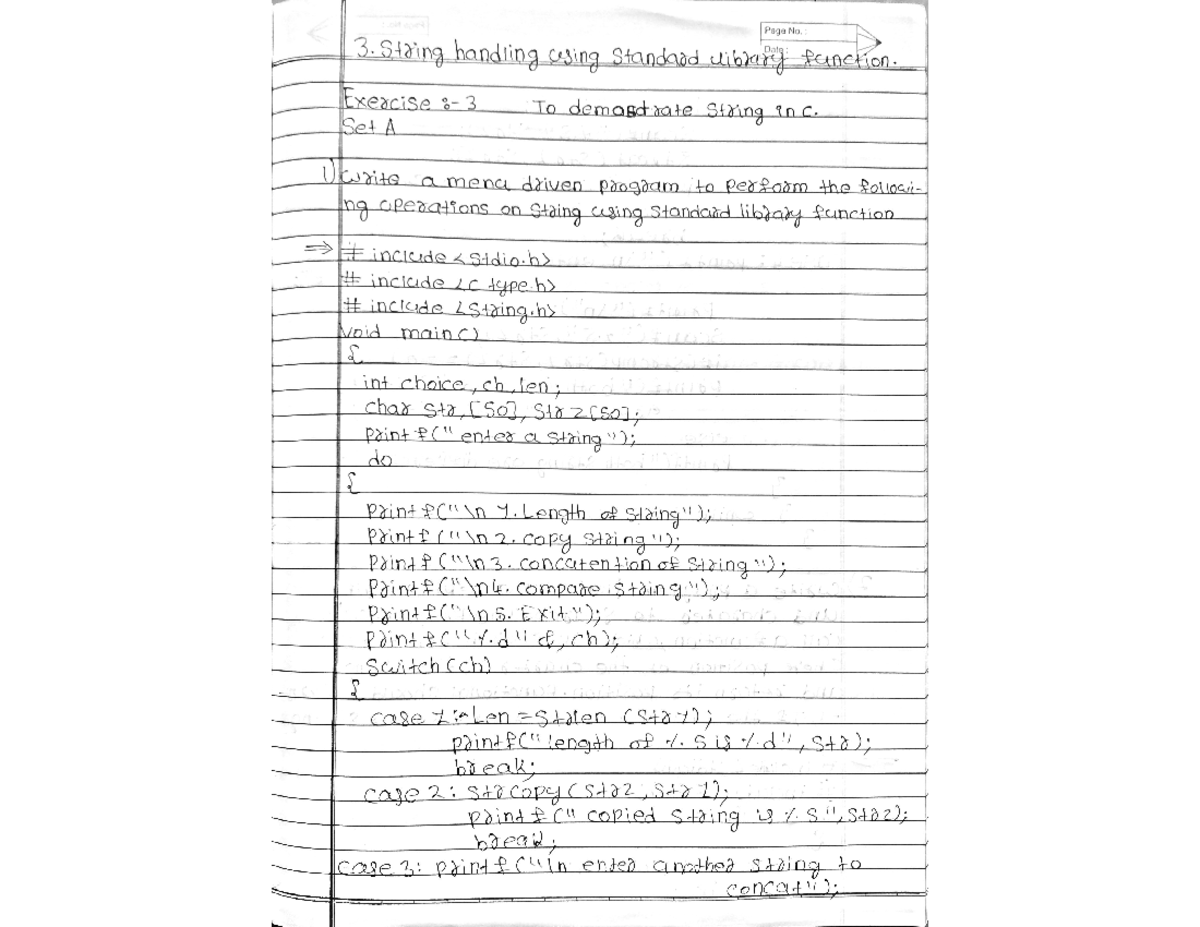 Page No.
Date:
3. String handling using Standard library function.
Exercise :- 3 To demostrate String in C.
Set A
1) Write a menu driven program to perform the followi-
ng operations on String using Standard library function
⇒ # include <Stdio.h>
# include <C type.h>
# include <String.h>
Void main()
{
int choice, ch, len;
char Str, [50], Str 2[50];
printf(" enter a string");
do
{
printf("\n 1. Length of string");
printf ("\n 2. copy string");
printf ("\n 3. concatention of String");
Printf("\n4. compare string");
Printf("\n 5. Exit");
printf("%d" &, ch);
Switch (ch)
{
case 1:- Len = Strlen (Str1);
printf("length of %s is %d", Str);
break;
case 2: Strcopy (Str2, Str 1);
printf (" copied string is %s", Str2);
break;
case 3: printf("\n enter another string to
concat");